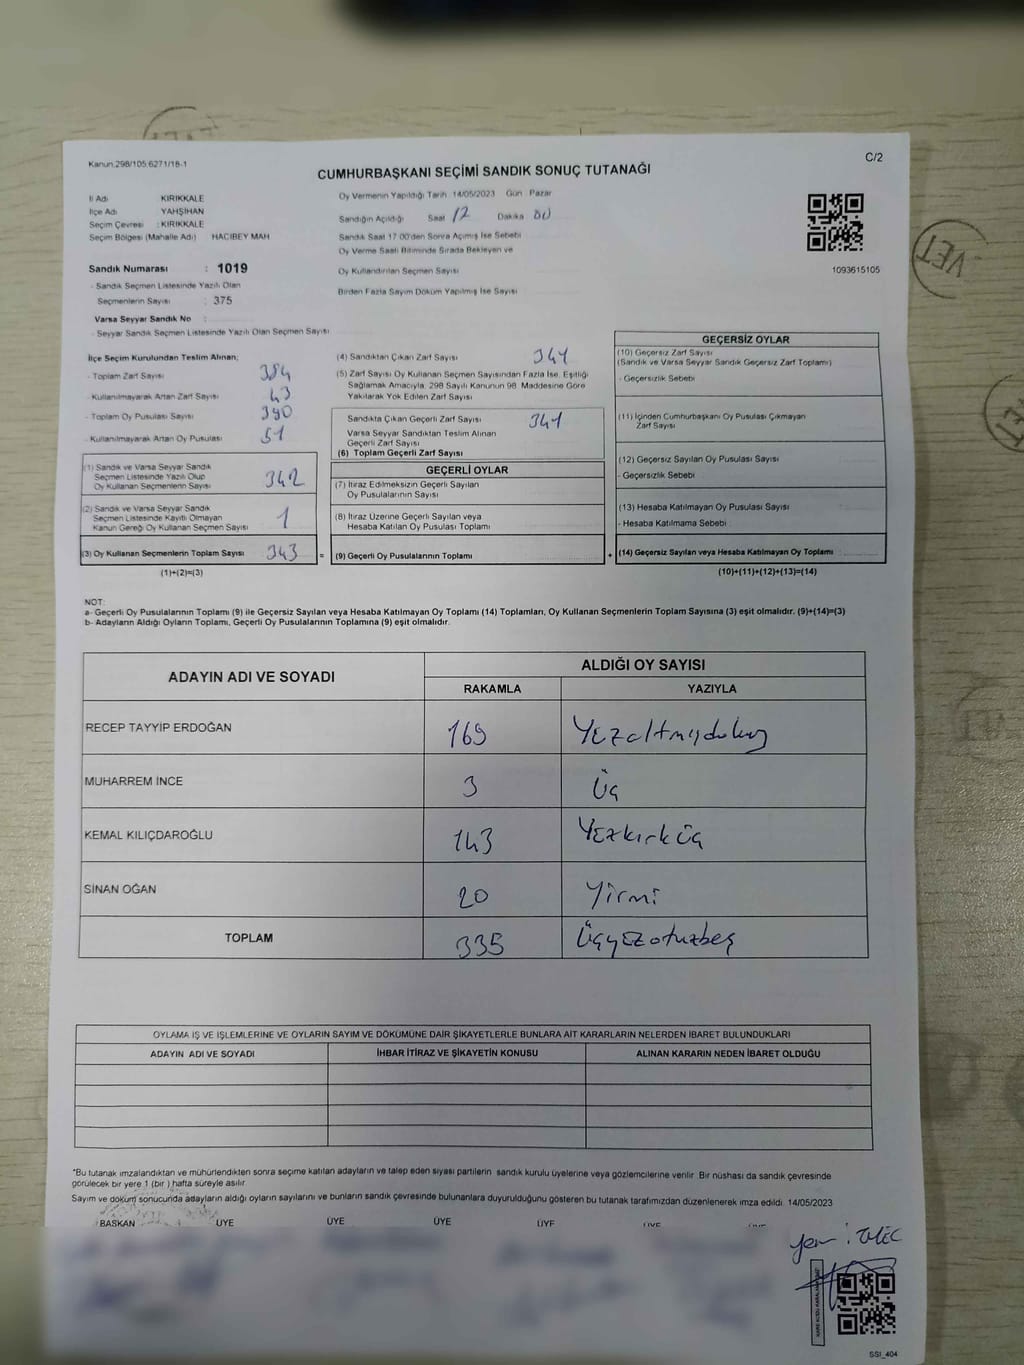 Kanun.298/105.6271/18-1
C/2
CUMHURBAŞKANI SEÇİMİ SANDIK SONUÇ TUTANAĞI
İl Adı KIRIKKALE
İlçe Adı YAHŞİHAN
Seçim Çevresi : KIRIKKALE
Seçim Bölgesi (Mahalle Adı) HACIBEY MAH
Sandık Numarası : 1019
- Sandık Seçmen Listesinde Yazılı Olan
Seçmenlerin Sayısı : 375
Varsa Seyyar Sandık No :
- Seyyar Sandık Seçmen Listesinde Yazılı Olan Seçmen Sayısı
Oy Vermenin Yapıldığı Tarih 14/05/2023 Gün Pazar
Sandığın Açıldığı Saat 12 Dakika 00
Sandık Saat 17.00'den Sonra Açımış İse Sebebi
Oy Verme Saati Bitiminde Sırada Bekleyen ve
Oy Kullandırılan Seçmen Sayısı
Birden Fazla Sayım Döküm Yapılmış İse Sayısı
1093615105
İlçe Seçim Kurulundan Teslim Alınan;
- Toplam Zarf Sayısı 384
- Kullanılmayarak Artan Zarf Sayısı 43
- Toplam Oy Pusulası Sayısı 390
- Kullanılmayarak Artan Oy Pusulası 51
(1) Sandık ve Varsa Seyyar Sandık
Seçmen Listesinde Yazılı Olup
Oy Kullanan Seçmenlerin Sayısı 342
(2) Sandık ve Varsa Seyyar Sandık
Seçmen Listesinde Kayıtlı Olmayan
Kanun Gereği Oy Kullanan Seçmen Sayısı 1
(3) Oy Kullanan Seçmenlerin Toplam Sayısı 343 =
(1)+(2)=(3)
(4) Sandıktan Çıkan Zarf Sayısı 341
(5) Zarf Sayısı Oy Kullanan Seçmen Sayısından Fazla İse, Eşitliği
Sağlamak Amacıyla, 298 Sayılı Kanunun 98. Maddesine Göre
Yakılarak Yok Edilen Zarf Sayısı
Sandıkta Çıkan Geçerli Zarf Sayısı 341
Varsa Seyyar Sandıktan Teslim Alınan
Geçerli Zarf Sayısı
(6) Toplam Geçerli Zarf Sayısı
GEÇERLİ OYLAR
(7) İtiraz Edilmeksizin Geçerli Sayılan
Oy Pusulalarının Sayısı
(8) İtiraz Üzerine Geçerli Sayılan veya
Hesaba Katılan Oy Pusulası Toplamı
(9) Geçerli Oy Pusulalarının Toplamı +
GEÇERSİZ OYLAR
(10) Geçersiz Zarf Sayısı
(Sandık ve Varsa Seyyar Sandık Geçersiz Zarf Toplamı)
- Geçersizlik Sebebi
(11) İçinden Cumhurbaşkanı Oy Pusulası Çıkmayan
Zarf Sayısı
(12) Geçersiz Sayılan Oy Pusulası Sayısı
- Geçersizlik Sebebi
(13) Hesaba Katılmayan Oy Pusulası Sayısı
- Hesaba Katılmama Sebebi
(14) Geçersiz Sayılan veya Hesaba Katılmayan Oy Toplamı
(10)+(11)+(12)+(13)=(14)
NOT:
a- Geçerli Oy Pusulalarının Toplamı (9) ile Geçersiz Sayılan veya Hesaba Katılmayan Oy Toplamı (14) Toplamları, Oy Kullanan Seçmenlerin Toplam Sayısına (3) eşit olmalıdır. (9)+(14)=(3)
b- Adayların Aldığı Oyların Toplamı, Geçerli Oy Pusulalarının Toplamına (9) eşit olmalıdır.
ADAYIN ADI VE SOYADI ALDIĞI OY SAYISI
RAKAMLA YAZIYLA
RECEP TAYYİP ERDOĞAN 169 Yüzaltmışdokuz
MUHARREM İNCE 3 Üç
KEMAL KILIÇDAROĞLU 143 Yüzkırküç
SİNAN OĞAN 20 Yirmi
TOPLAM 335 Üçyüzotuzbeş
OYLAMA İŞ VE İŞLEMLERİNE VE OYLARIN SAYIM VE DÖKÜMÜNE DAİR ŞİKAYETLERLE BUNLARA AİT KARARLARIN NELERDEN İBARET BULUNDUKLARI
ADAYIN ADI VE SOYADI İHBAR İTİRAZ VE ŞİKAYETİN KONUSU ALINAN KARARIN NEDEN İBARET OLDUĞU
*Bu tutanak imzalandıktan ve mühürlendikten sonra seçime katılan adayların ve talep eden siyasi partilerin sandık kurulu üyelerine veya gözlemcilerine verilir. Bir nüshası da sandık çevresinde
görülecek bir yere 1 (bir ) hafta süreyle asılır.
Sayım ve döküm sonucunda adayların aldığı oyların sayılarını ve bunların sandık çevresinde bulunanlara duyurulduğunu gösteren bu tutanak tarafımızdan düzenlenerek imza edildi. 14/05/2023
BAŞKAN ÜYE ÜYE ÜYE ÜYE ÜYE
SSI_404